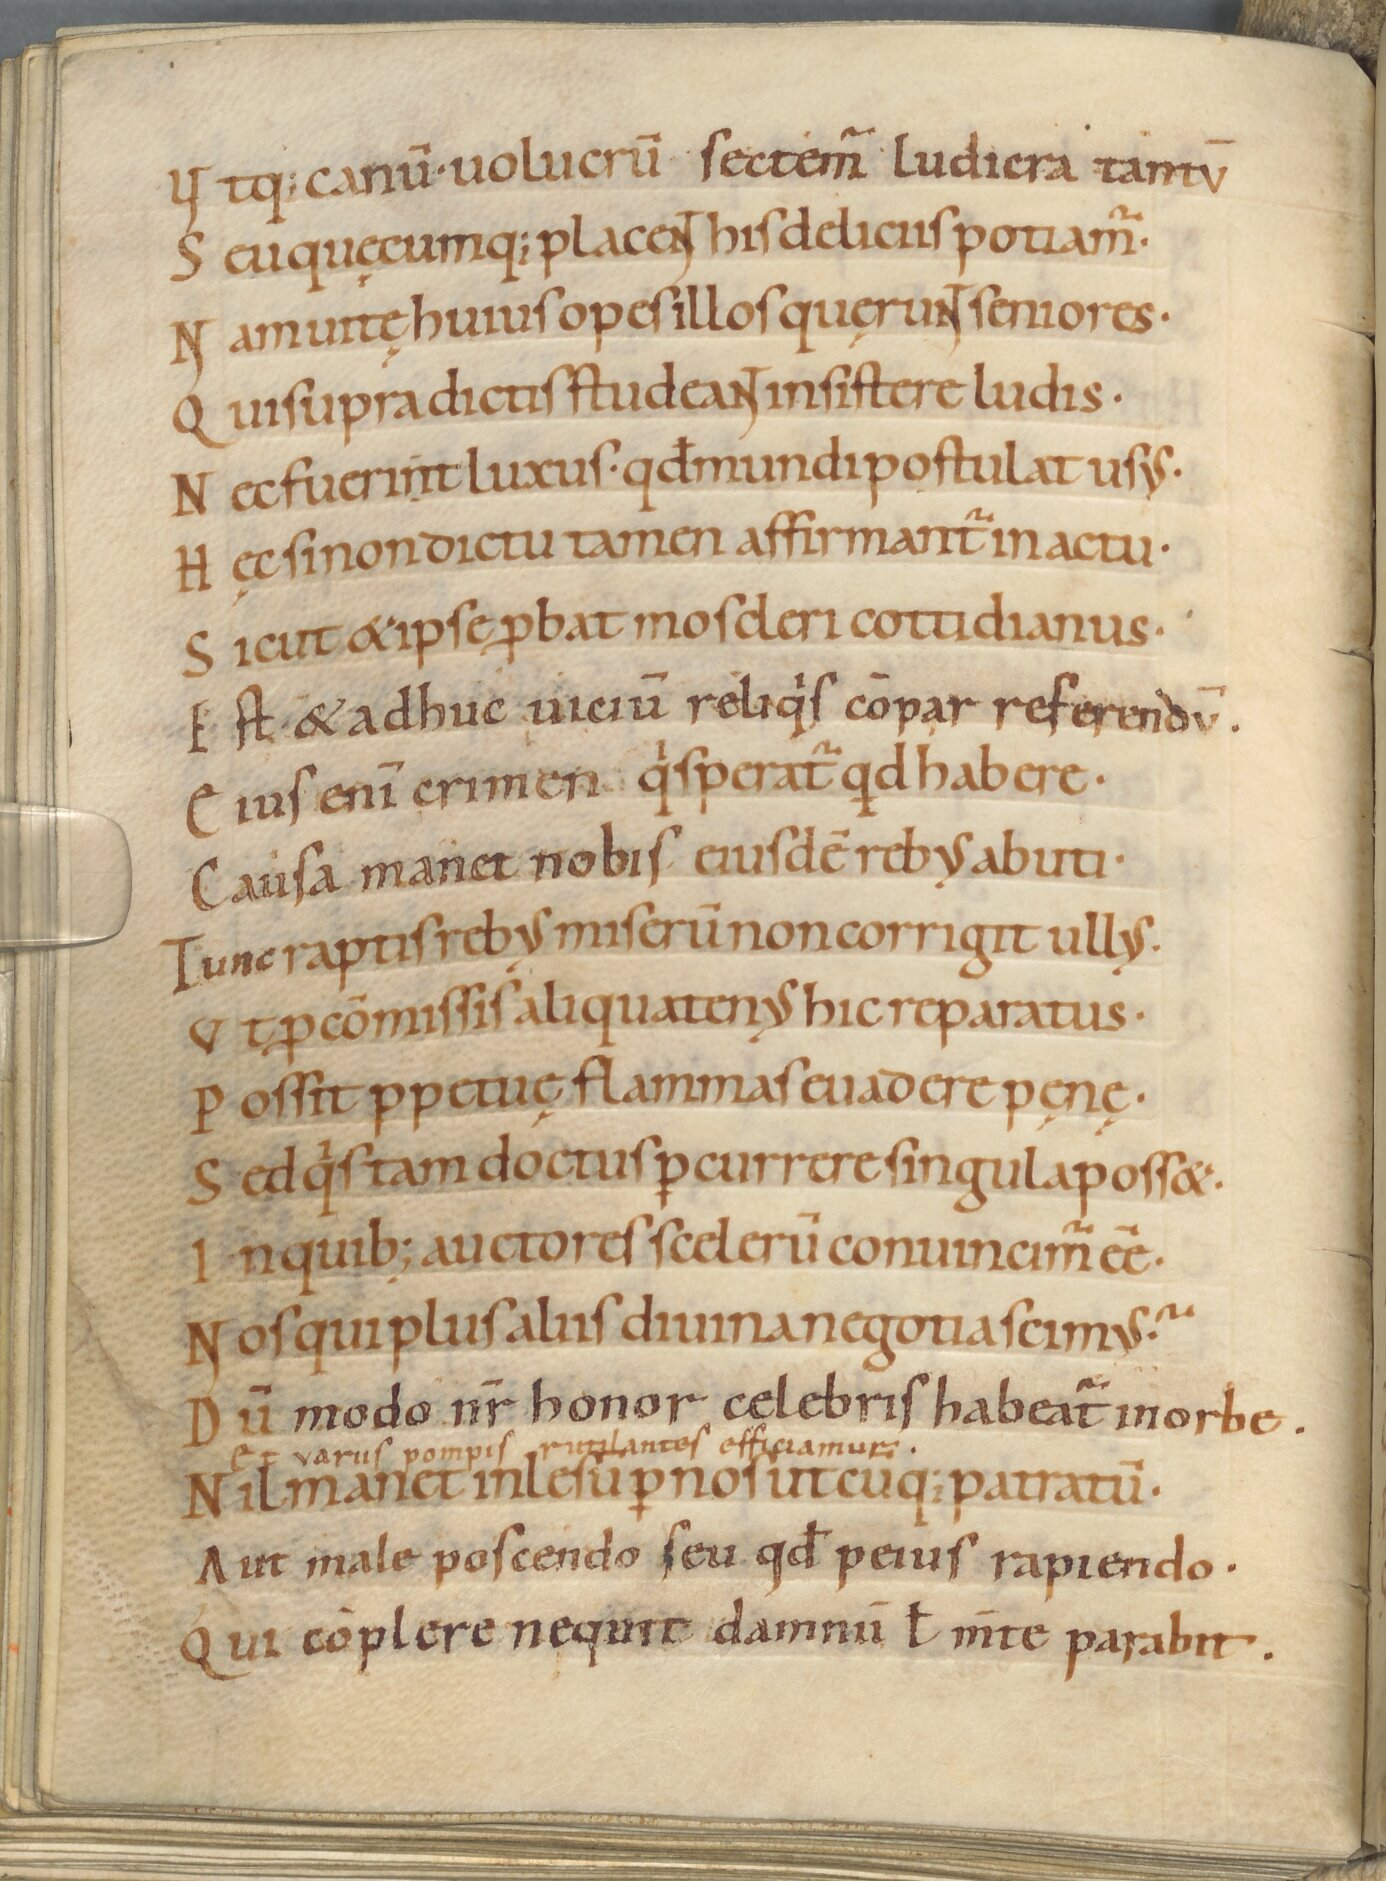 Vtq; canū·uolucrū sectem̃ ludicra tantv̄
Seu quęcumq; placeNT his deliciis potiam̃·
Nam uitę huius opes illos quęruNT seniores·
Qui supra dictis studeaNT insistere ludis·
Nec fuerint luxus· qđ mundi postulat usꝰ·
Hęc si non dictu tamen affirmant̃ in actu·
Sicut & ipse ꝓbat mos cleri cottidianus·
Est & adhuc uiciū reliq̍s cōpar referendv̄.
Eius enī crimen q̍ sperat̃ qd habere·
Causa manet nobis eiusdē rebꝰ abuti·
Tunc raptis rebꝰ miserū non corrigit ullꝰ·
Vt ꝓ cōmissis aliquatenꝰ hic reparatus·
Possit ppetuę flammas euadere pęnę·
Sed q̍s tam doctus ꝑcurrere singula poss&·
In quib; auctores scelerū conuincim̃ eē·
Nos qui plus aliis diuina negotia scimꝰ·~
Dū modo nr̄ honor celebris habeat̃ in orbe.
Et variis pompis rutilantes efficiamur.
Nil manet inlesū ꝑ nos utcuq; patratū·
Aut male poscendo seu qđ peius rapiendo·
Qui cōplere nequit damnū ł m̄te parabit.